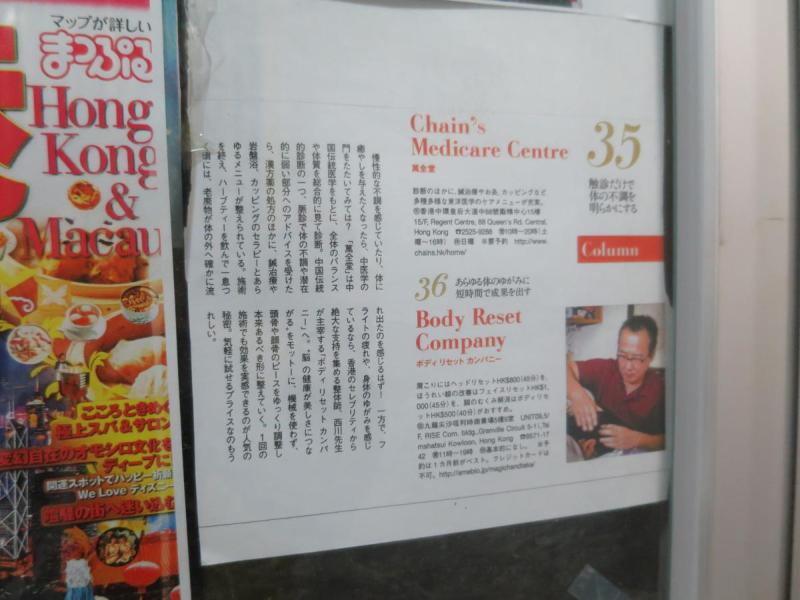 マップが詳しい
まっぷる
Hong
Kong
&
Macau
こころときめく
極上スパ&サロン
変幻自在のオモシロ文化を
ディープに
開運スポットでハッピー祈願
We Love ディズニー
喧騒の街へ迷い込む
慢性的な不調を感じていたり、体に
癒やしを与えたくなったら、中医学の
門をたたいてみては?「萬全堂」は中
国伝統医学をもとに、全体のバランス
や体質を総合的に見て診断。中国伝統
的診断の一つ、脈診で体の不調や潜在
的に弱い部分へのアドバイスを受けた
ら、漢方薬の処方のほかに、鍼治療や
岩盤浴、カッピングのセラピーとあら
ゆるメニューが整えられている。施術
を終え、ハーブティーを飲んで一息つ
く頃には、老廃物が体の外へ確かに流
れ出たのを感じるはず! 一方で、フ
ライトの疲れや、身体のゆがみを感じ
ているなら、香港のセレブリティから
絶大な支持を集める整体師、西川先生
が主宰する「ボディ リセット カンパ
ニー」へ。"脳"の健康が美しさにつな
がる"をモットーに、機械を使わず、
頭骨や顔骨のピースをゆっくり調整し
本来あるべき形に整えていく。1回の
施術でも効果を実感できるのが人気の
秘密。気軽に試せるプライスなのもう
れしい。
Chain's
Medicare Centre
萬全堂
診断のほかに、鍼治療やお灸、カッピングなど
多種多様な東洋医学のケアメニューが充実。
香港中環皇后大道中88號勵精中心15樓
15/F, Regent Centre, 88 Queen's Rd. Central,
Hong Kong ☎2525-9288 10時~20時(土
曜~16時) 日曜 ※要予約 http://www.
chains.hk/home/
35
触診だけで
体の不調を
明らかにする
Column
36 あらゆる体のゆがみに
短時間で成果を出す
Body Reset
Company
ボディ リセット カンパニー
肩こりにはヘッドリセットHK$800(40分)を、
ほうれい線の改善はフェイスリセットHK$1,
000(45分)を、脳のむくみ解消はボディリセ
ットHK$500(40分)がおすすめ。
九龍尖沙咀利時商業場5樓室 UNIT
F, RISE Com. bldg., Granville Circuit 5-11, Tsi
mshatsui Kowloon, Hong Kong ☎9571-17
42 11時~19時 基本的になし。 ※予
約は1カ月前がベスト。クレジットカードは
不可。http://ameblo.jp/magichandtaka/